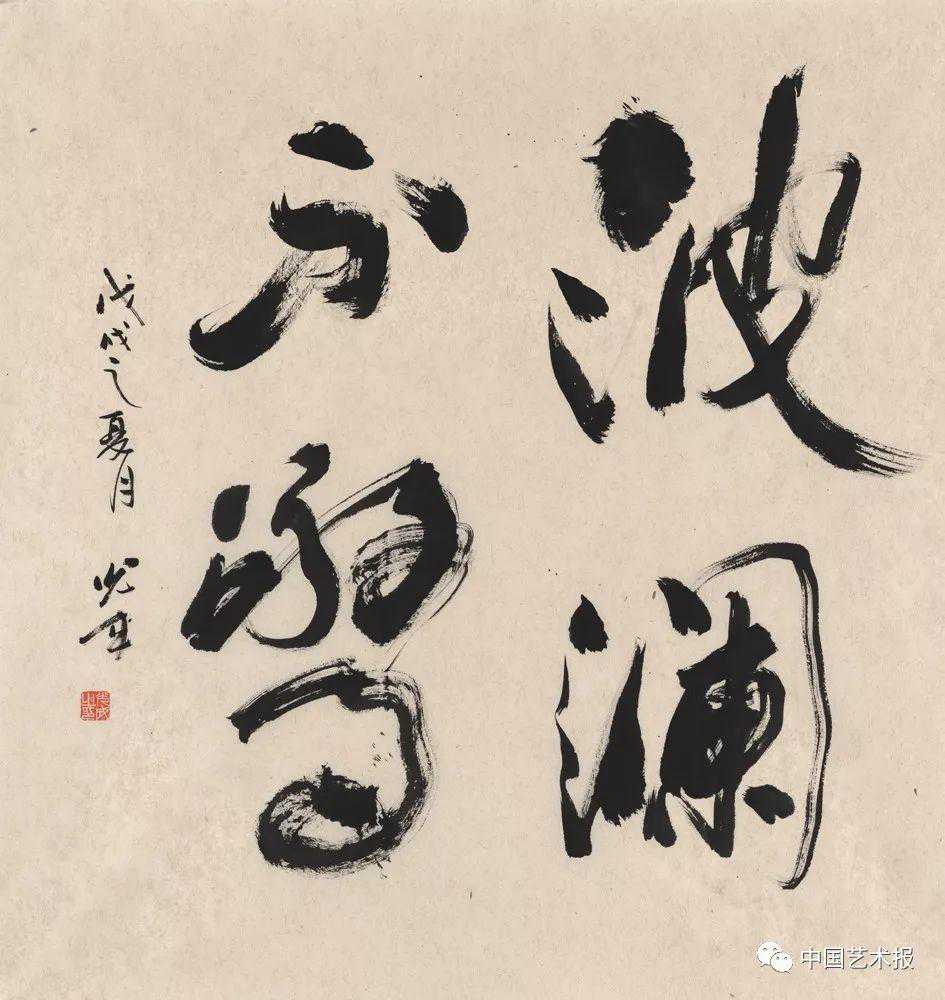 波瀾
不驚
戊戌之夏月
中国艺术报